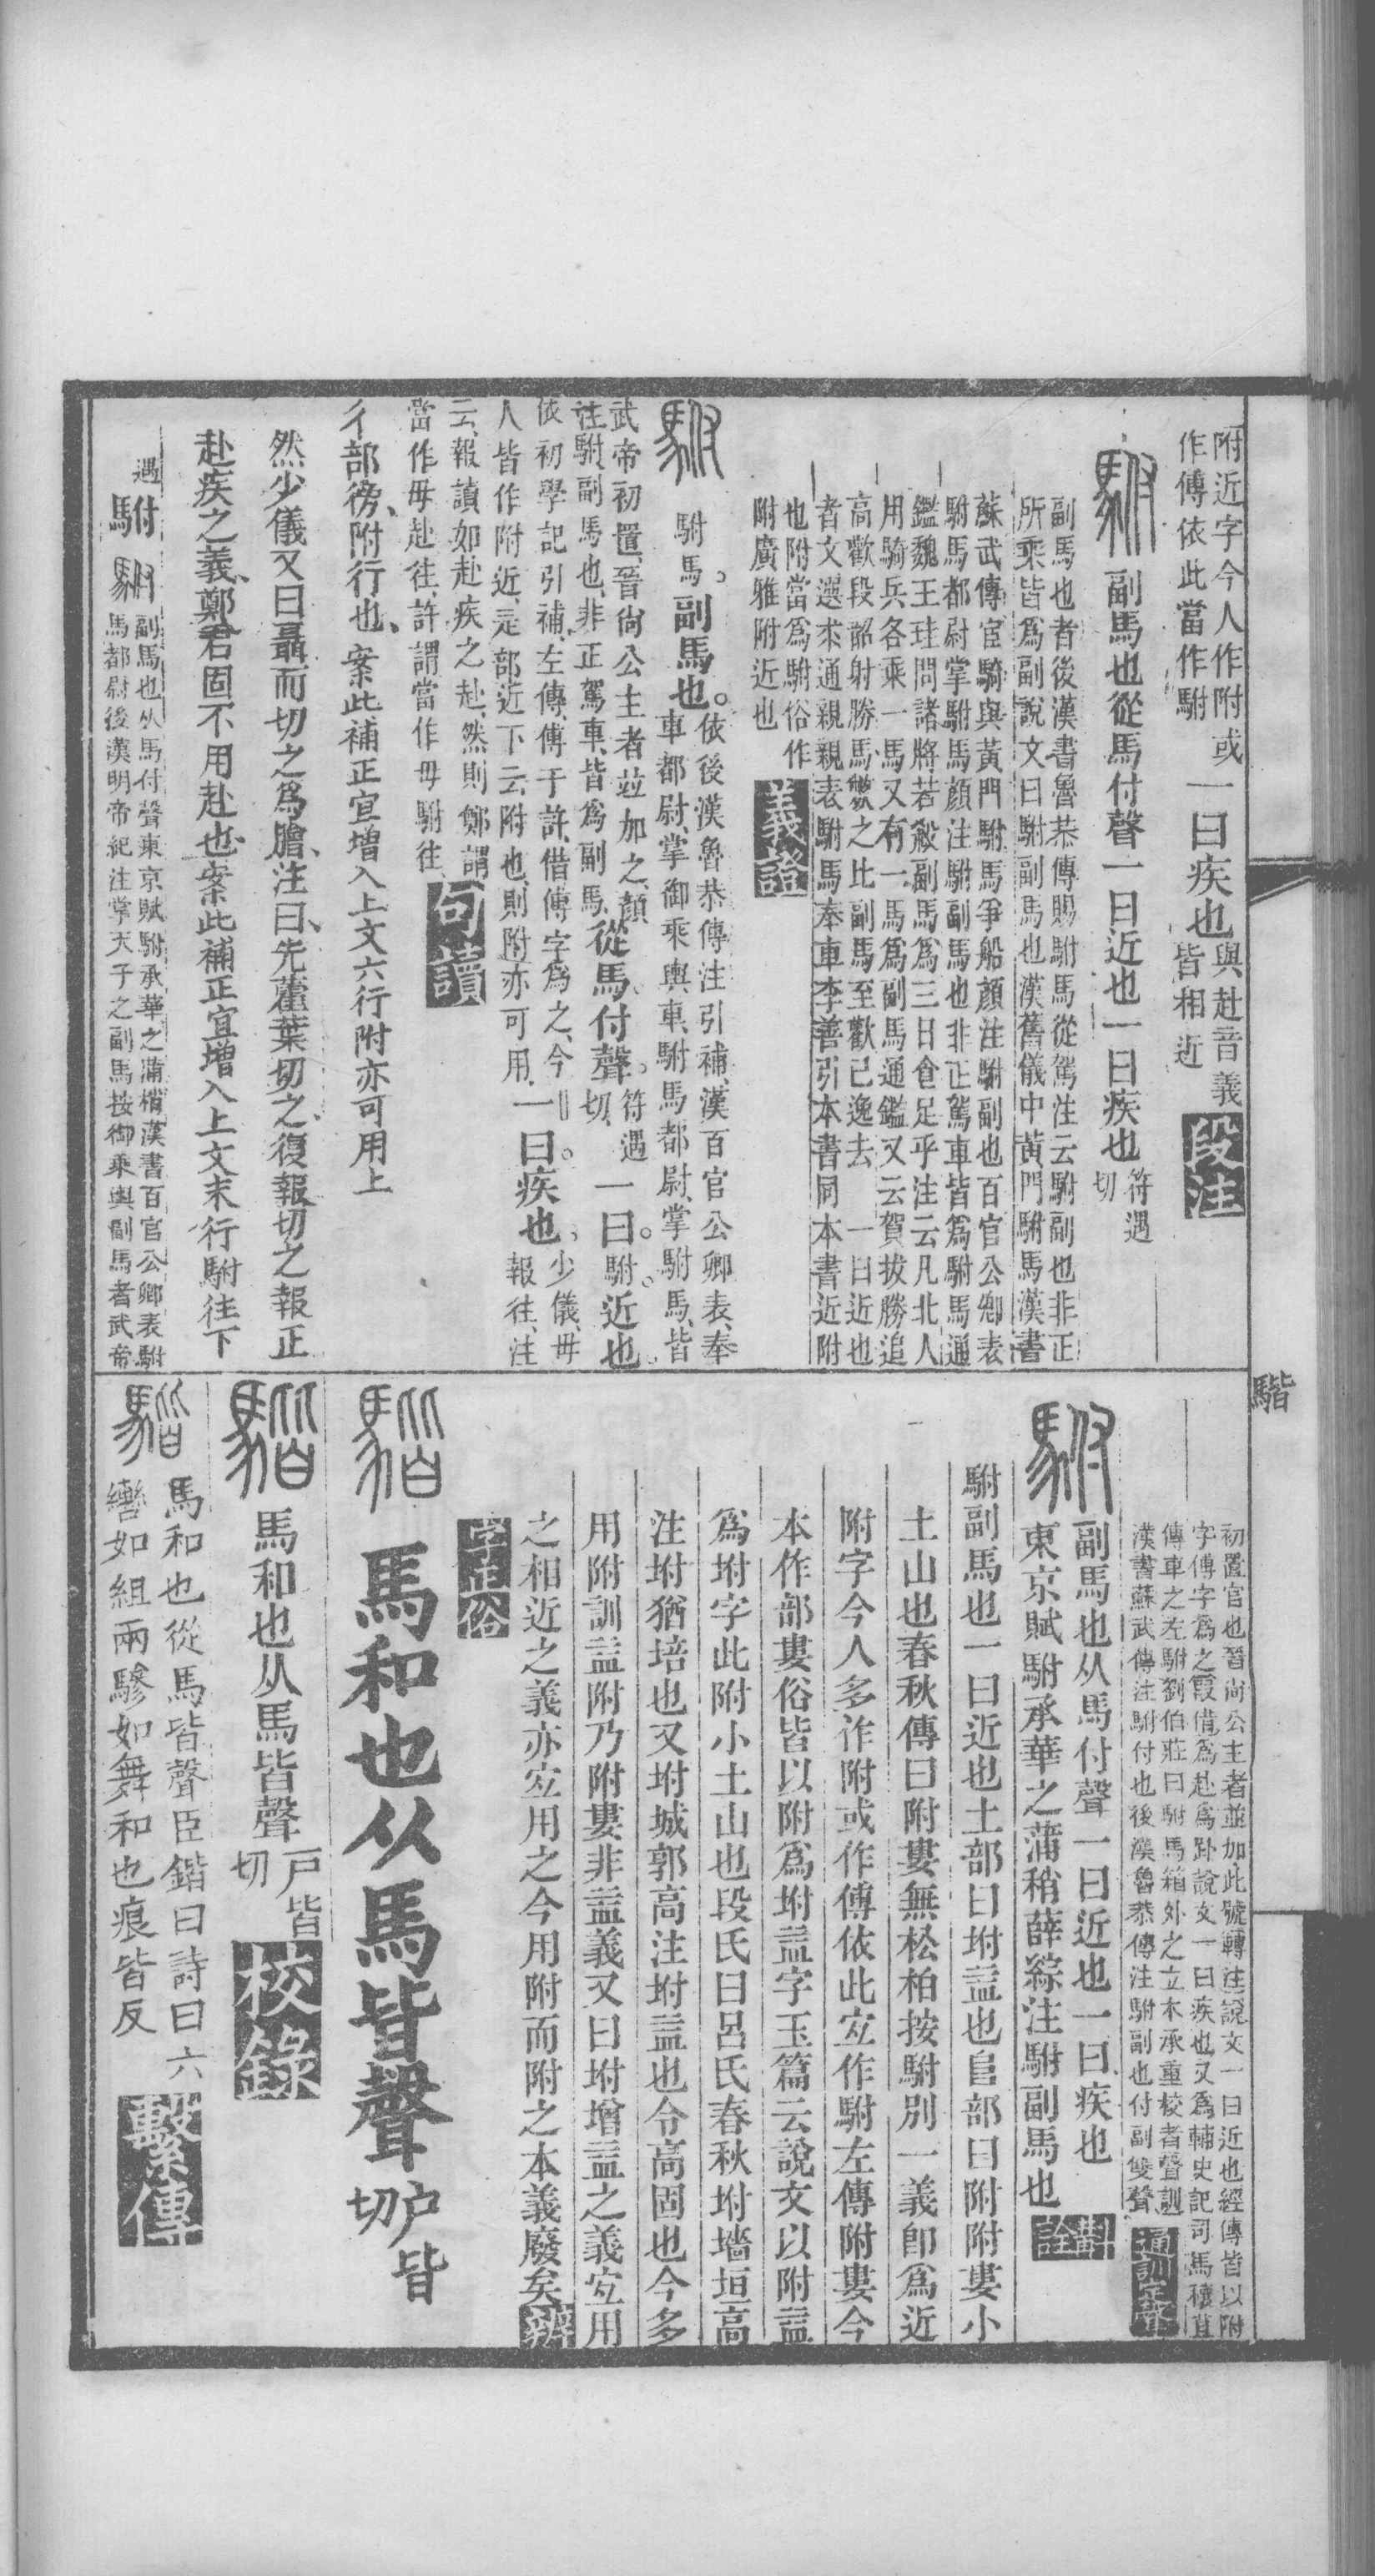 附近字今人作附或
作傅依此當作駙
一曰疾也
與赴音義
皆相近
段注
駙
副馬也從馬付聲一曰近也一曰疾也
符遇
切
副馬也者後漢書魯恭傳賜駙馬從駕注云駙副也非正
所乘皆爲副說文曰駙副馬也漢舊儀中黃門駙馬漢書
蘇武傳宦騎與黃門駙馬爭船顏注駙副也百官公卿表
駙馬都尉掌駙馬顏注駙副馬也非正駕車皆爲駙馬通
鑑魏王珪問諸將若殺副馬爲三日食足乎注云凡北人
用騎兵各乘一馬又有一馬爲副馬通鑑又云賀拔勝追
高歡段韶射勝馬斃之比副馬至歡已逸去 一曰近也
者文選求通親親表駙馬奉車李善引本書同本書近附
也附當爲駙俗作
附廣雅附近也
義證
駙
駙馬。副馬也。
依後漢魯恭傳注引補、漢百官公卿表、奉
車都尉、掌御乘輿車、駙馬都尉、掌駙馬、皆
武帝初置、晉尙公主者竝加之、顏
注駙、副馬也、非正駕車、皆爲副馬、
從馬、付聲。
符遇
切、
一曰。駙。近也、
依初學記引補、左傳、傅于許、借傅字爲之、今
人皆作附近、是部近下云、附也、則附亦可用、
一曰。疾也、
少儀、毋
報往、注
云、報讀如赴疾之赴、然則鄭謂、
當作毋赴往、許謂當作毋駙往、
句讀
彳部㣍、附行也、案此補正宜增入上文六行附亦可用上
然少儀又曰聶而切之爲膾、注曰、先藿葉切之、復報切之報正
赴疾之義、鄭君固不用赴也、案此補正宜增入上文末行駙往下
遇
駙
駙
副馬也从馬付聲東京賦駙承華之蒲梢漢書百官公卿表駙
馬都尉後漢明帝紀注掌天子之副馬按御乘輿副馬者武帝
騊
初置官也晉尙公主者並加此號轉注說文一曰近也經傳皆以附
字傅字爲之叚借爲赴爲趴說文一曰疾也又爲輔史記司馬穰苴
傳車之左駙劉伯莊曰駙馬箱外之立木承重校者聲訓
漢書蘇武傳注駙付也後漢魯恭傳注駙副也付副雙聲
通訓定聲
駙
副馬也从馬付聲一曰近也一曰疾也
東京賦駙承華之蒲稍薛綜注駙副馬也
斠詮
駙副馬也一曰近也土部曰坿益也𨸏部曰附附婁小
土山也春秋傳曰附婁無松柏按駙別一義卽爲近
附字今人多作附或作傅依此宐作駙左傳附婁今
本作部婁俗皆以附爲坿益字玉篇云說文以附益
爲坿字此附小土山也段氏曰呂氏春秋坿墻垣高
注坿猶培也又坿城郭高注坿益也令高固也今多
用附訓益附乃附婁非益義又曰坿增益之義宐用
之相近之義亦宐用之今用附而附之本義廢矣
辨字正俗
騭
馬和也从馬皆聲
户皆
切
騭
馬和也从馬皆聲
戸皆
切
校錄
馬和也從馬皆聲臣鍇曰詩曰六
轡如組兩驂如舞和也痕皆反
繫傳